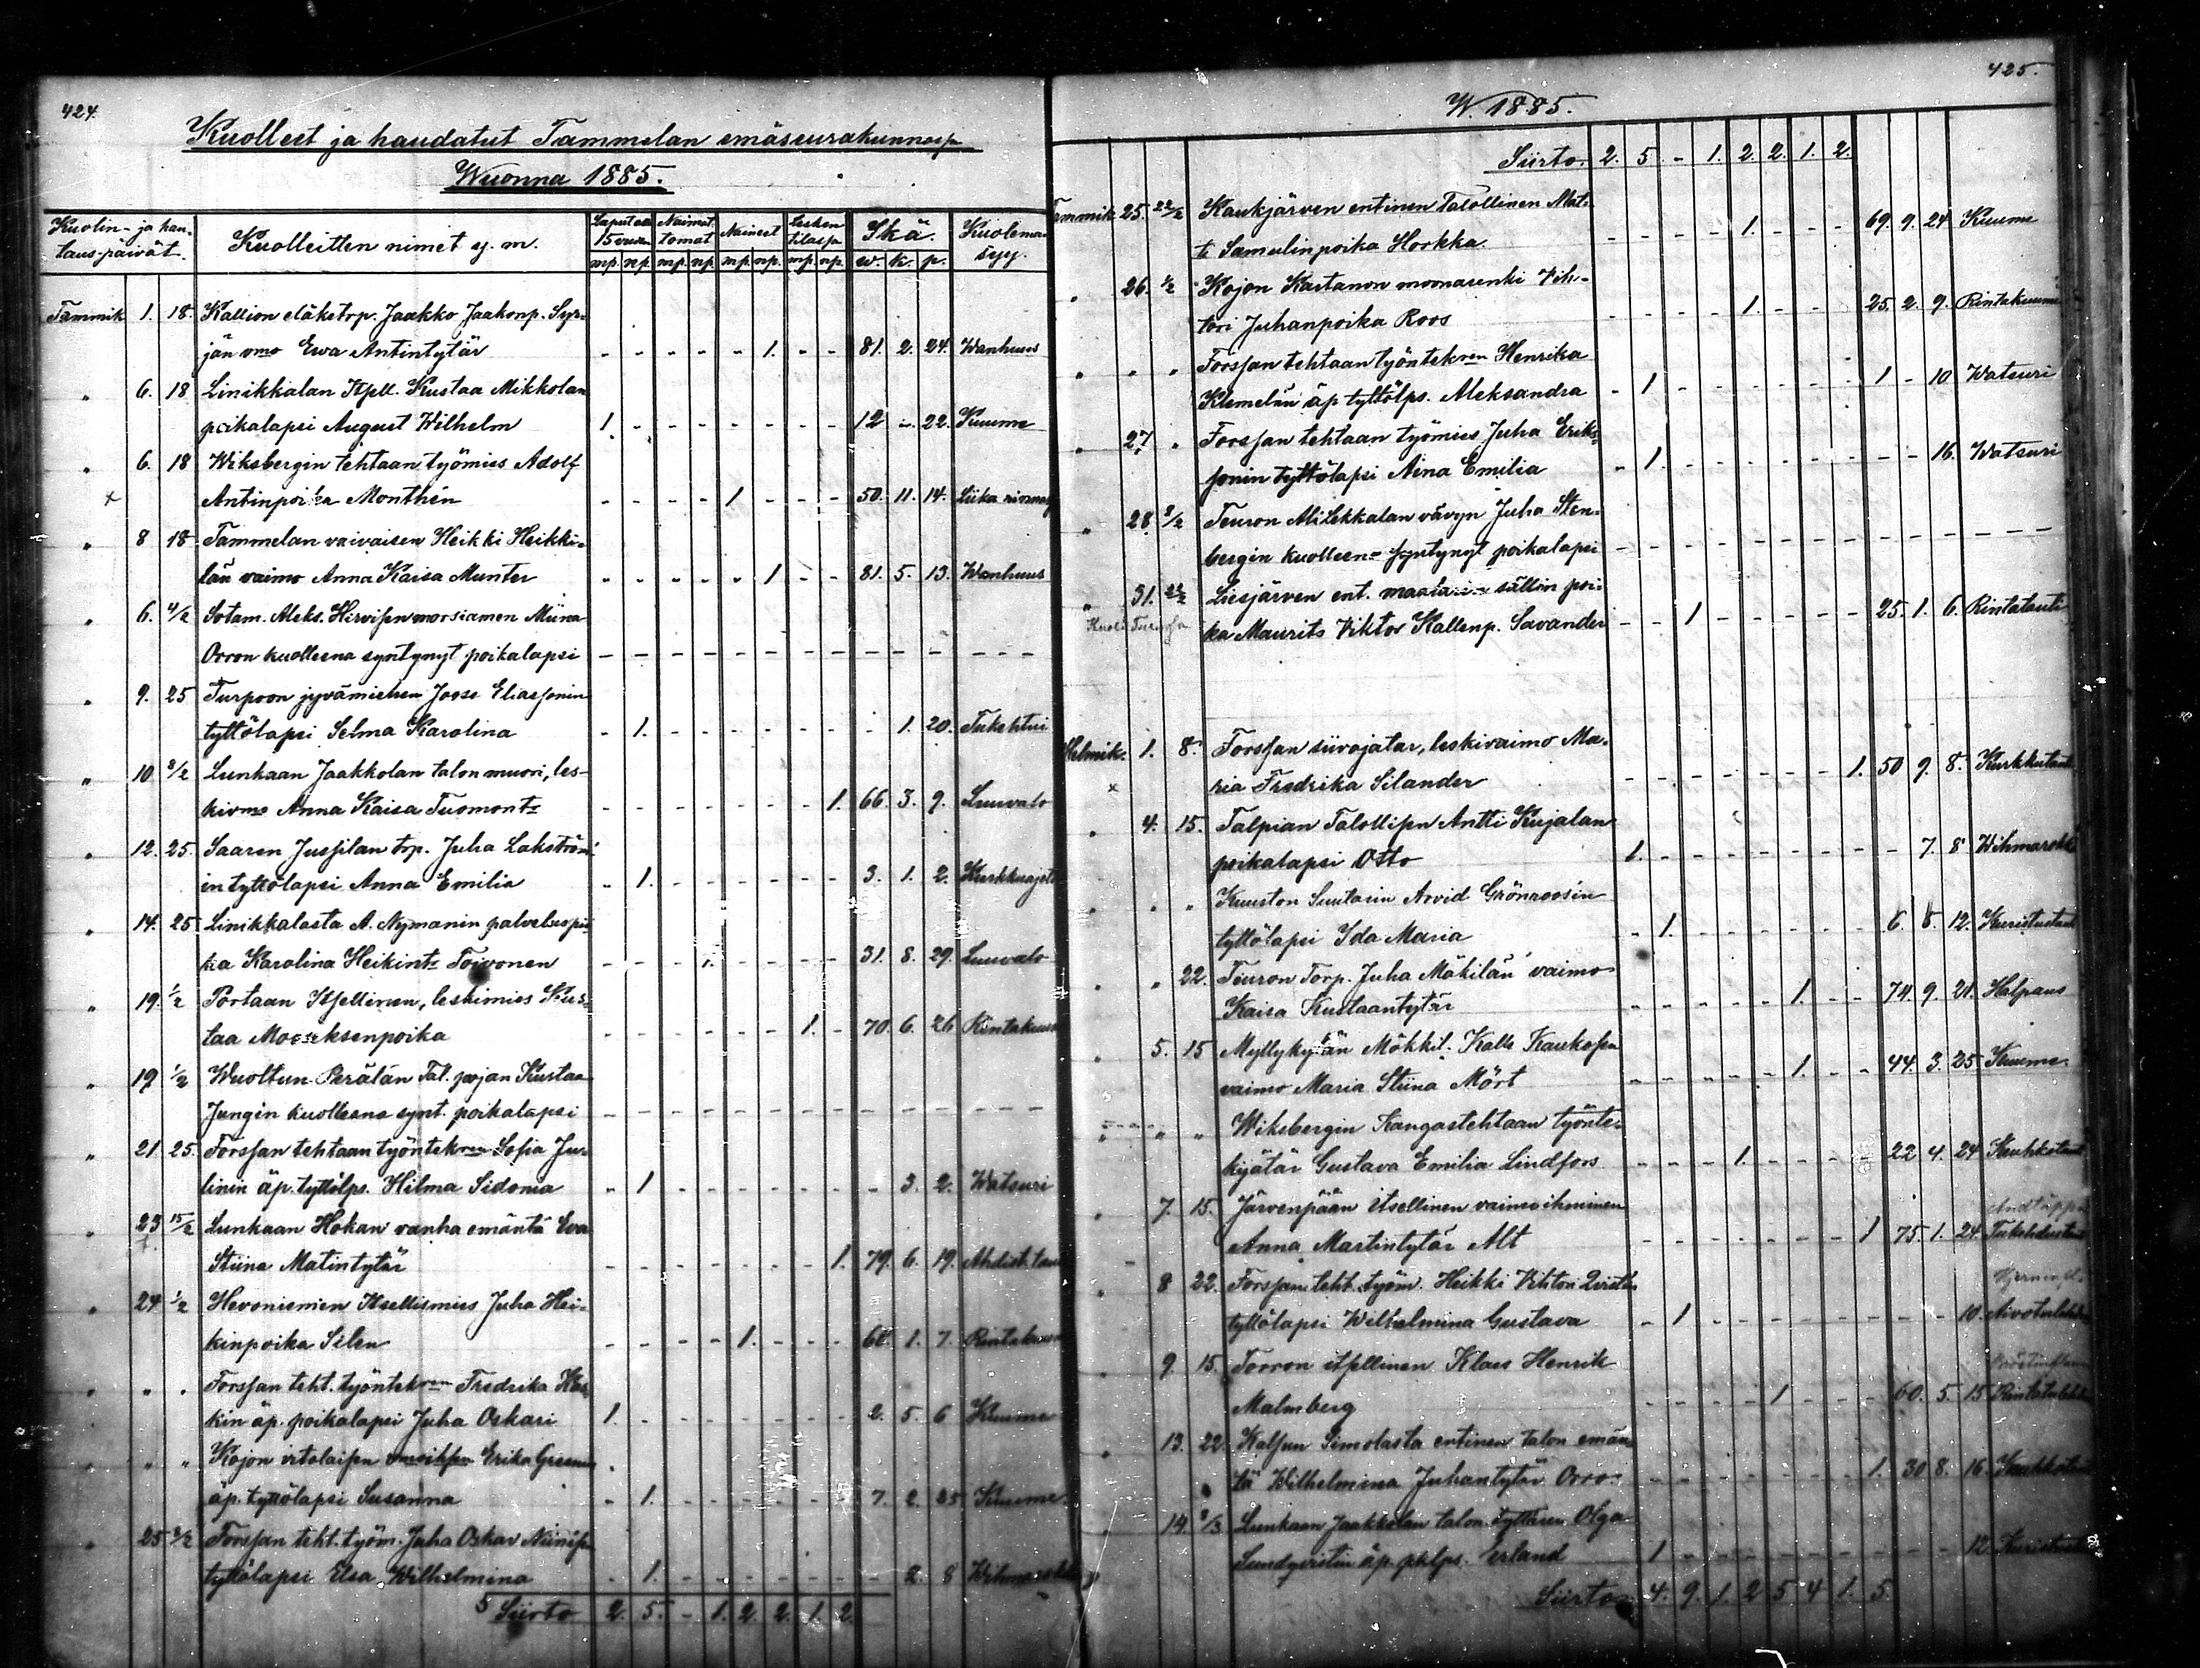 424
Kuolleet ja haudatut Tammelan emäseurakunnassa
Wuonna 1885.
Kuolin- ja hautaus-päivät. Kuolleitten nimet y. m. Lapset alla 15 vuoden Naimattomat Naineet Leskentilassa Ikä. Kuoleman syy.
mp. np. mp. np. mp. np. mp. np. w. k. p.
Tammik 1. 18. Kallion eläketrp. Jaakko Jaakonp. Syr-
jän vmo Ewa Antintytär - - - - - 1. - - 81. 2. 24. Wanhuus
" 6. 18 Linikkalan Itsell. Kustaa Mikkolan
poikalapsi August Wilhelm 1. - - - - - - - 12 - 22. Kuume
" 6. 18 Wiksbergin tehtaan työmies Adolf
x Antinpoika Monthén - - - - 1. - - - 50. 11. 14. Liika
" 8 18 Tammelan vaivaisen Heikki Heikki-
län vaimo Anna Kaisa Munter - - - - - 1. - - 81. 5. 13. Wanhuus
" 6. 4/2 Sotam. Aleks. Hirvisen morsiamen Miina
Orron kuolleena syntynyt poikalapsi - - - - - - - - - - -
" 9. 25 Turpoon jyvämiehen Joose Eliassonin
tyttölapsi Selma Karolina - 1. - - - - - - - 1. 20. Tukehtui
" 10. 8/2 Lunkaan Jaakkolan talon muori, les-
kivmo Anna Kaisa Tuomont: - - - - - - - 1. 66. 3. 9. Luuvalo
" 12. 25. Saaren Jussilan trp. Juha Lakström-
in tyttölapsi Anna Emilia - 1. - - - - - - 3. 1. 2. Kurkkuajet
" 14. 25 Linikkalasta A. Nymanin palveluspii-
ka Karolina Heikint: Toivonen - - - 1. - - - - 31. 8. 29. Luuvalo
" 19. 1/2 Portaan Itsellinen, leskimies Kus-
taa Mooseksenpoika - - - - - - 1. - 70. 6. 26 Rintakuume
" 19 1/2 Wuoltun Perälän Tal. pojan Kustaa
Jungin kuolleena synt. poikalapsi - - - - - - - - - - -
" 21 25. Forssan tehtaan työntekren Sofia Ju-
linin äp. tyttölps. Hilma Sidonia - 1 - - - - - - - 3. 2. Watsuri
" 23 15/2 Lunkaan Hokan vanha emäntä Eva
Stiina Matintytär - - - - - - - 1. 79. 6. 19. Ahdist. taut
" 24 1/2 Hevoniemen Itsellismies Juha Hei-
kinpoika Selen - - - - 1. - - - 1. 7. Rintakuume
" " " Forssan teht. työntekren Fredrika
kin äp. poikalapsi Juha Oskari 1. - - - - - - - 2. 5. 6 Kuume
" " Kojon Erika
äp. tyttölapsi Susanna - 1. - - - - - - 7. 2. 25 Kuume
" 25 8/2 Forssan teht. työm. Juha Oskar
tyttölapsi Elsa Wilhelmina - 1. - - - - - - - 2. 8
Siirto 2. 5. - 1. 2. 2. 1. 2.
425.
W. 1885.
Siirto 2. 5. - 1. 2. 2. 1. 2.
Tammik. 25. 22/2 Kaukjärven entinen Talollinen Mat-
ti Samulinpoika Horkka - - - - 1. - - - 69. 9. 24 Kuume
" 26. 1/2 Kojon Kartanon moonarenki Vih-
tori Juhanpoika Roos - - - - 1. - - - 25. 2. 9. Rintakuume
" " " Forssan tehtaan työntekren Henrika
Klemelän äp tyttölps. Aleksandra - 1 - - - - - - 1 - 10 Watsuri
" 27 " Forssan tehtaan työmies Juha Eriks-
sonin tyttölapsi Aina Emilia - 1. - - - - - - - - 16. Watsuri
" 28 8/2 Teuron vävyn Juha Sten-
bergin kuolleena syntynyt poikalapsi - - - - - - - - - - -
" 31. 22/2 Liesjärven ent. sällin poi-
ka Maurits Viktor Kallenp. Savander - - 1 - - - - - 25. 1. 6. Rintatauti
Helmik. 1. 8. Forssan siivojatar, leskivaimo Ma-
x ria Fredrika Silander - - - - - - - 1. 50 9. 8. Kurkkutaut
" 4. 15. Talpian Talollisen Antti Kujalan
poikalapsi Otto 1. - - - - - - - - 7. 8
" " " Kuuston Suutarin Arvid Grönroosin
tyttölapsi Ida Maria - 1. - - - - - - 6. 8. 12. Kuristustaut
" " 22. Teuron Torp. Juha Mäkilän vaimo
Kaisa Kustaantytär - - - - - 1. - - 74 9. 21 Halpaus
" 5. 15 Myllykylän Mökkil. Kalle Kaukosen
vaimo Maria Stiina Mört - - - - - 1. - - 44. 3. 25 Kuume.
" " " Wiksbergin Kangastehtaan työnte-
kijätär Gustava Emilia Lindfors - - - 1. - - - - 22 4. 24 Keuhkotaut
" 7. 15. Järvenpään itsellinen vaimoihminen
Anna Martintytär Alt - - - - - - - 1 75. 1. 24
" 8 22. Forssan teht. työm. Heikki Vihtori
tyttölapsi Wilhelmina Gustava - 1 - - - - - - - - 10.
" 9. 15. Torron itsellinen Klaes Henrik
Malmberg - - - - 1 - - - 60. 5. 15
" 13. 22. Kalsun Simolasta entinen talon emän-
tä Wilhelmina Juhantytär Orro - - - - - - - 1. 30 8. 16 Keuhkotaut
" 14. 8/3 Lunkaan Jaakkolan talon tyttären Olga
Sundqvistin äp. phlps. Erland 1 - - - - - - - - - 12.
Siirto 4. 9. 1. 2 5. 4 1. 5.